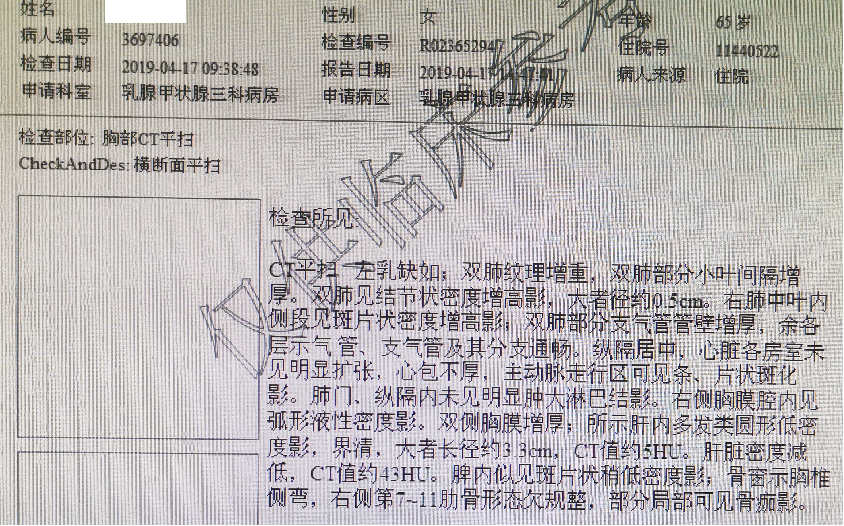 姓名 性别 女 年龄 65岁
病人编号 3697406 检查编号 R023652947 住院号 11440522
检查日期 2019-04-17 09:38:48 报告日期 2019-04-17 病人来源 住院
申请科室 乳腺甲状腺三科病房 申请病区 乳腺甲状腺三科病房
检查部位: 胸部CT平扫
CheckAndDes: 横断面平扫
检查所见:
CT平扫 左乳缺如；双肺纹理增重，双肺部分小叶间隔增
厚。双肺见结节状密度增高影，大者径约0.5cm。右肺中叶内
侧段见斑片状密度增高影；双肺部分支气管管壁增厚，余各
层示气管、支气管及其分支通畅。纵隔居中，心脏各房室未
见明显扩张，心包不厚，主动脉走行区可见条、片状斑化
影。肺门、纵隔内未见明显肿大淋巴结影。右侧胸膜腔内见
弧形液性密度影。双侧胸膜增厚；所示肝内多发类圆形低密
度影，界清，大者长径约3.3cm，CT值约5HU。肝脏密度减
低，CT值约43HU。脾内似见斑片状稍低密度影；骨窗示胸椎
侧弯，右侧第7~11肋骨形态欠规整，部分局部可见骨痂影。
仅供临床